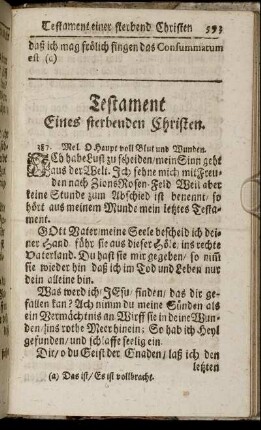 Testament einer sterbend Christen 593
daß ich mag frölich singen das Consummatum
est (a)
Testament
Eines sterbenden Christen.
387. Mel. O Haupt voll Blut und Wunden.
ICh habe Lust zu scheiden/ mein Sinn geht
aus der Welt. Ich sehne mich mit Freu-
den nach Zions Rosen-Feld Weil aber
keine Stunde zum Abschied ist benennt/ so
hört aus meinem Munde mein letztes Testa-
ment.
GOtt Vater/ meine Seele bescheid ich dei-
ner Hand führ sie aus dieser Höle, ins rechte
Vaterland. Du hast sie mir gegeben/ so nim̃
sie wieder hin daß ich im Tod und Leben nur
dein alleine bin.
Was werd ich/ JEsu/ finden/ das dir ge-
fallen kan? Ach/ nimm du meine Sünden als
ein Vermächtnis an Wirff sie in deine Wun-
den/ ins rothe Meer hinein; So hab ich Heyl
gefunden/ und schlaffe seelig ein.
Dir/ o du Geist der Gnaden/ laß ich den
letzten
(a) Das ist/ Es ist vollbracht.